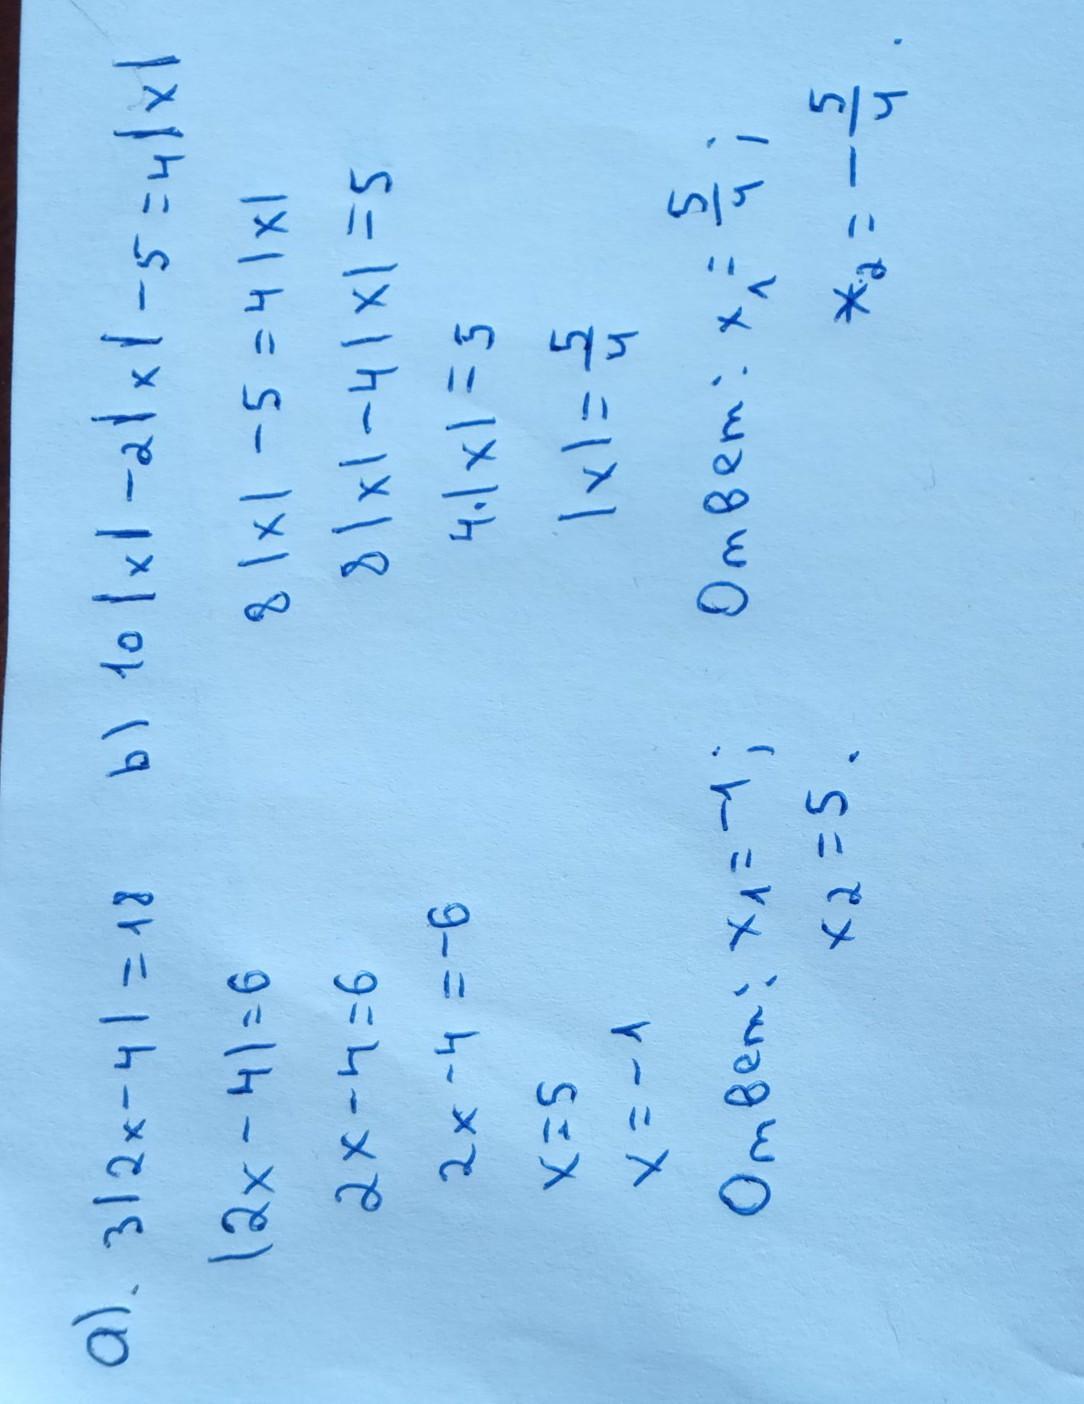 a). 3|2x-4|=18
|2x-4|=6
2x-4=6
2x-4=-6
x=5
x=-1
Ответ: x₁=-1;
x₂=5.
b) 10|x|-2|x|-5=4|x|
8|x|-5=4|x|
8|x|-4|x|=5
4·|x|=5
|x|=5/4
Ответ: x₁=5/4;
x₂=-5/4.